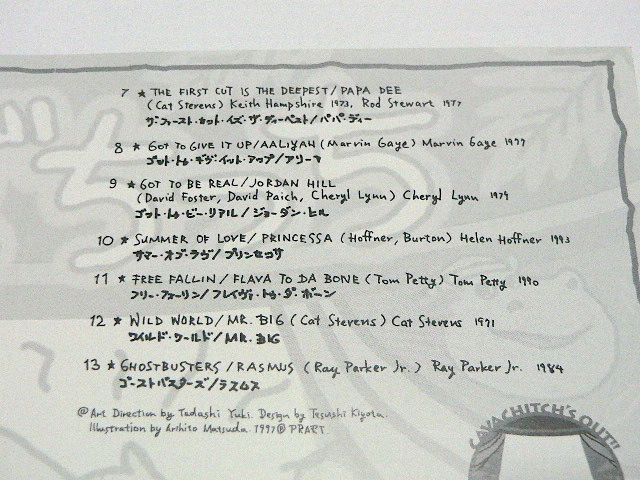 7 ★ THE FIRST CUT IS THE DEEPEST/PAPA DEE
(Cat Stevens) Keith Hampshire 1973, Rod Stewart 1977
ザ・ファースト・カット・イズ・ザ・ディーペスト/パパ・ディー
8 ★ GOT TO GIVE IT UP/AALIYAH (Marvin Gaye) Marvin Gaye 1977
ゴット・トゥ・ギヴ・イット・アップ/アリーヤ
9 ★ GOT TO BE REAL/JORDAN HILL
(David Foster, David Paich, Cheryl Lynn) Cheryl Lynn 1974
ゴット・トゥ・ビー・リアル/ジョーダン・ヒル
10 ★ SUMMER OF LOVE/PRINCESSA (Hoffner, Burton) Helen Hoffner 1993
サマー・オブ・ラヴ/プリンセッサ
11 ★ FREE FALLIN/FLAVA TO DA BONE (Tom Petty) Tom Petty 1990
フリー・フォーリン/フレイヴァ・トゥ・ダ・ボーン
12 ★ WILD WORLD/MR. BIG (Cat Stevens) Cat Stevens 1971
ワイルド・ワールド/MR. BIG
13 ★ GHOSTBUSTERS/RASMUS (Ray Parker Jr.) Ray Parker Jr. 1984
ゴーストバスターズ/ラスムス
@ Art Direction by Tadashi Yuki. Design by Tesushi Kiyota.
Illustration by Arihito Matsuda. 1997 ® PRART.
CAVACHITCH'S OUT!!